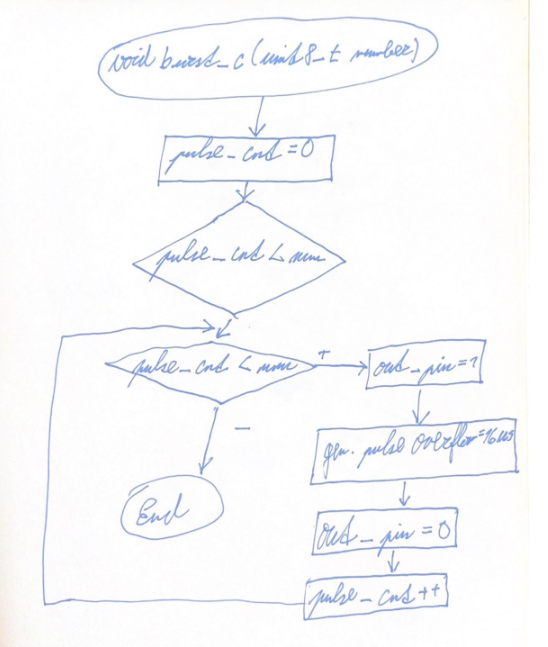 void burst_c (uint8_t number)
pulse_cnt = 0
pulse_cnt < num
pulse_cnt < num
+
out_pin = 1
-
gen. pulse overflow = 16us
End
out_pin = 0
pulse_cnt ++